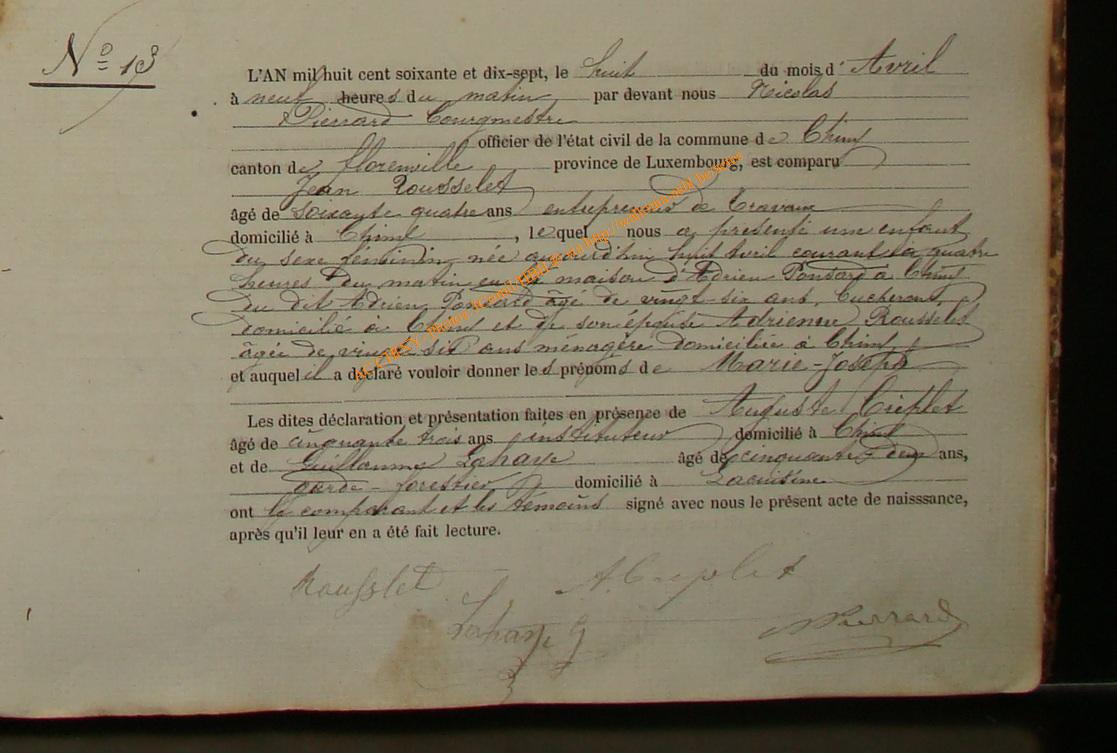 Nº 13
L'AN mil huit cent soixante et dix-sept, le huit du mois d' Avril
à neuf heures du matin par devant nous Nicolas
Pierrard Bourgmestre
officier de l'état civil de la commune de Chiny
canton de florenville province de Luxembourg, est comparu
Jean Rousselet
âgé de soixante quatre ans entrepreneur de travaux
domicilié à Chiny , lequel nous a présenté un enfant
du sexe féminin, née aujourd'hui huit avril courant à quatre
heures du matin en la maison d'Adrien Ponsard à Chiny
du dit Adrien Ponsard âgé de vingt-six ans,
domicilié à Chiny et de son épouse Adrienne Rousselet
âgée de vingt six ans ménagère domiciliée à Chiny
et auquel il a déclaré vouloir donner les prénoms de Marie-Joseph
Les dites déclaration et présentation faites en présence de Auguste Créplet
âgé de cinquante trois ans instituteur domicilié à Chiny
et de Guillaume Lahaye âgé de cinquante deux ans,
garde-forestier domicilié à Lacuisine
ont le comparant et les témoins signé avec nous le présent acte de naisssance,
après qu'il leur en a été fait lecture.
Rousslet A. Creplet
Lahaye G
NPierrard